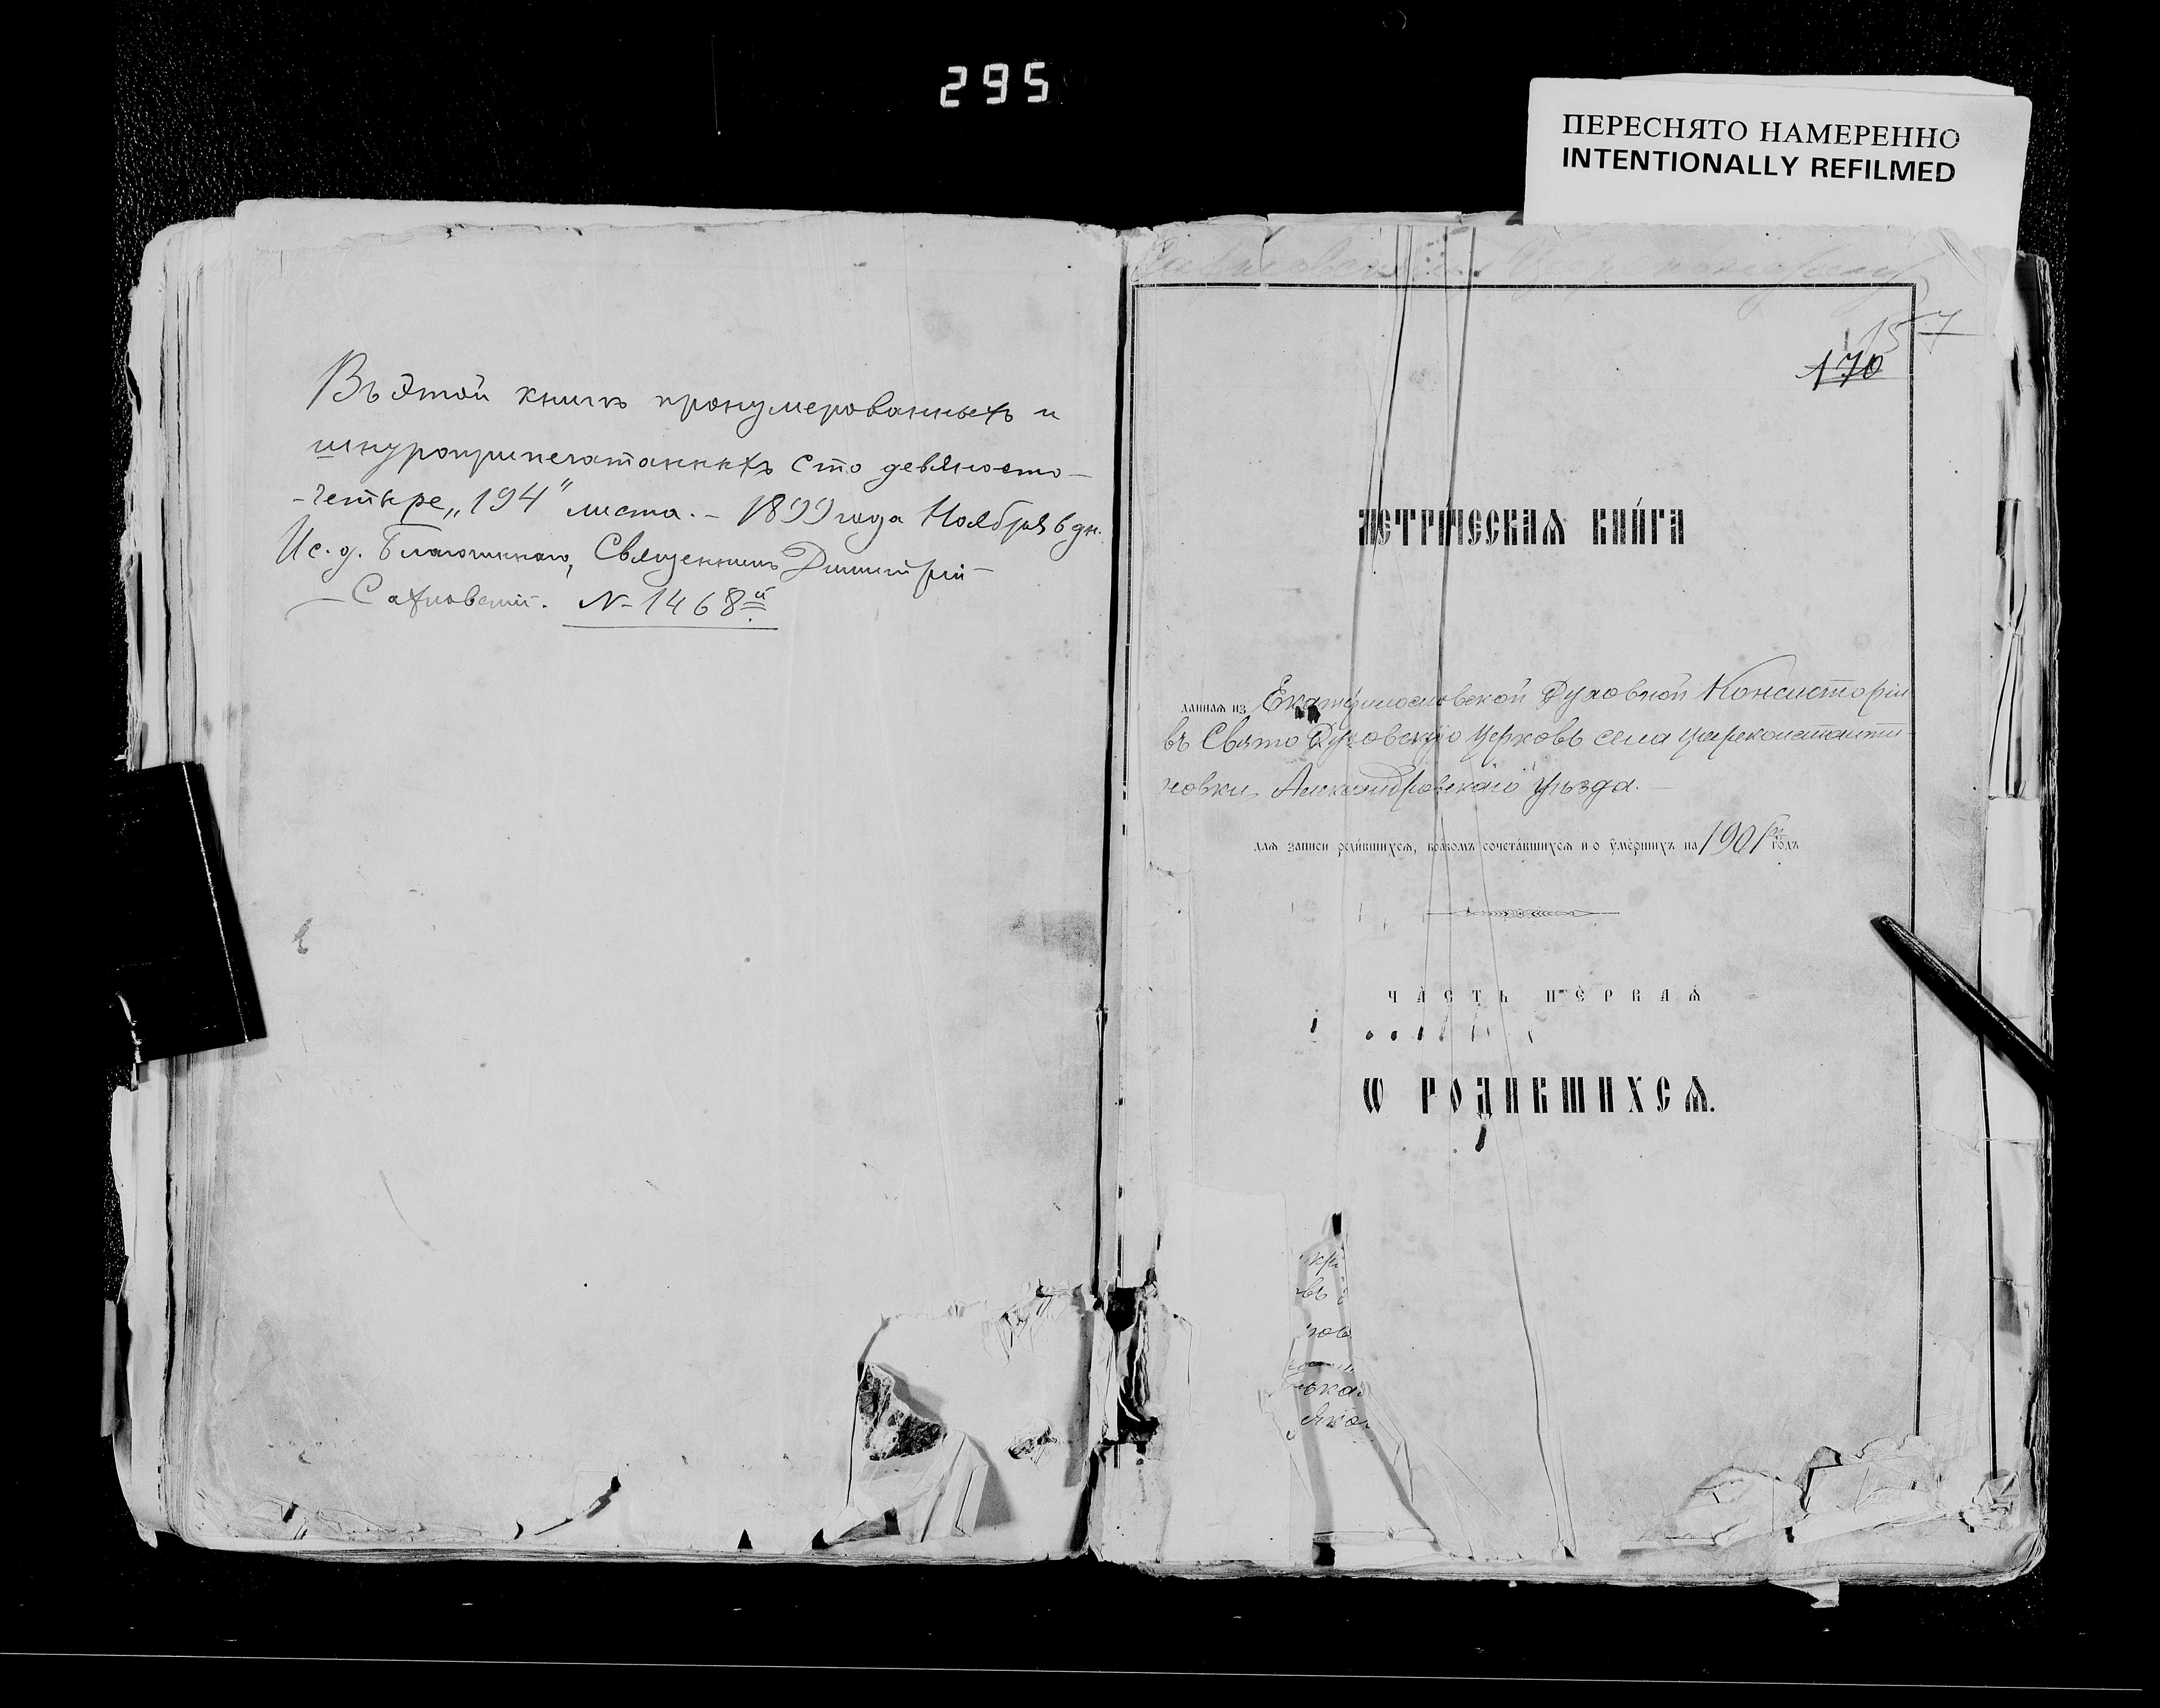 295
ПЕРЕСНЯТО НАМЕРЕННО
INTENTIONALLY REFILMED
Въ этой книгѣ пронумерованныхъ и
шнуроприпечатанныхъ сто девяносто
-четыре „194" листа. – 1899 года Ноября 6 дн.
Ис. д. Благочиннаго, Священникъ Димитрій
Сахновскій. N-1468й
157
170
МЕТРИ́ЧЕСКАѦ КНИ́ГА
даннаѧ из Екатеринославской Духовной Консисторіи
въ Свято Духовскую церковь села Цареконстанти-
новки, Александровскаго уѣзда.
длѧ записи роди́вшихсѧ, бра́комъ сочета́вшихсѧ и о ᲂу҆ме́ршихъ на 1901й го́дъ
ЧА́СТЬ ПЕ́РВАѦ
Ѡ РОДИ́ВШИХСѦ.